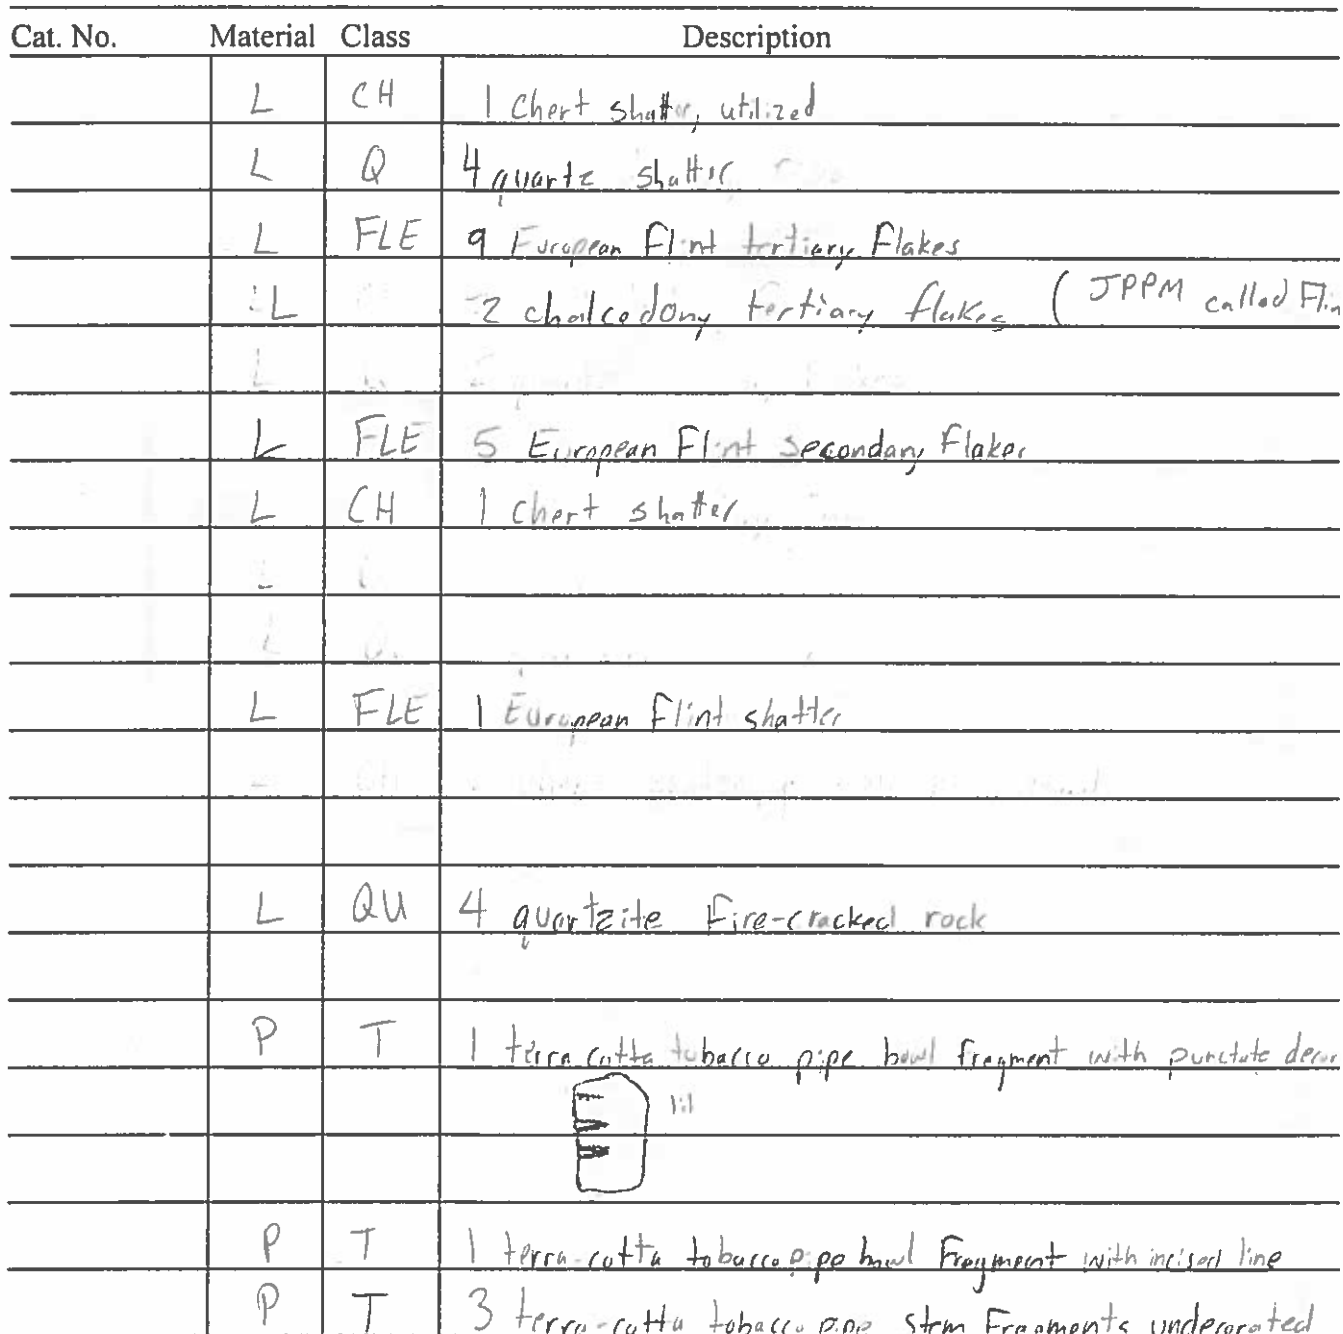 Cat. No. Material Class Description
L CH 1 Chert shatter, utilized
L Q 4 quartz shatter
L FLE 9 European Flint tertiary Flakes
L 2 chalcedony tertiary flakes ( JPPM called Flin
L
L FLE 5 European Flint secondary Flakes
L CH 1 Chert shatter
L
L
L FLE 1 European Flint shatter
L QU 4 quartzite Fire-cracked rock
P T 1 terra cotta tobacco pipe bowl fragment with punctate decor
1:1
P T 1 terra-cotta tobacco pipe bowl Fragment with incised line
P T 3 terra-cotta tobacco pipe stem Fragments undecorated